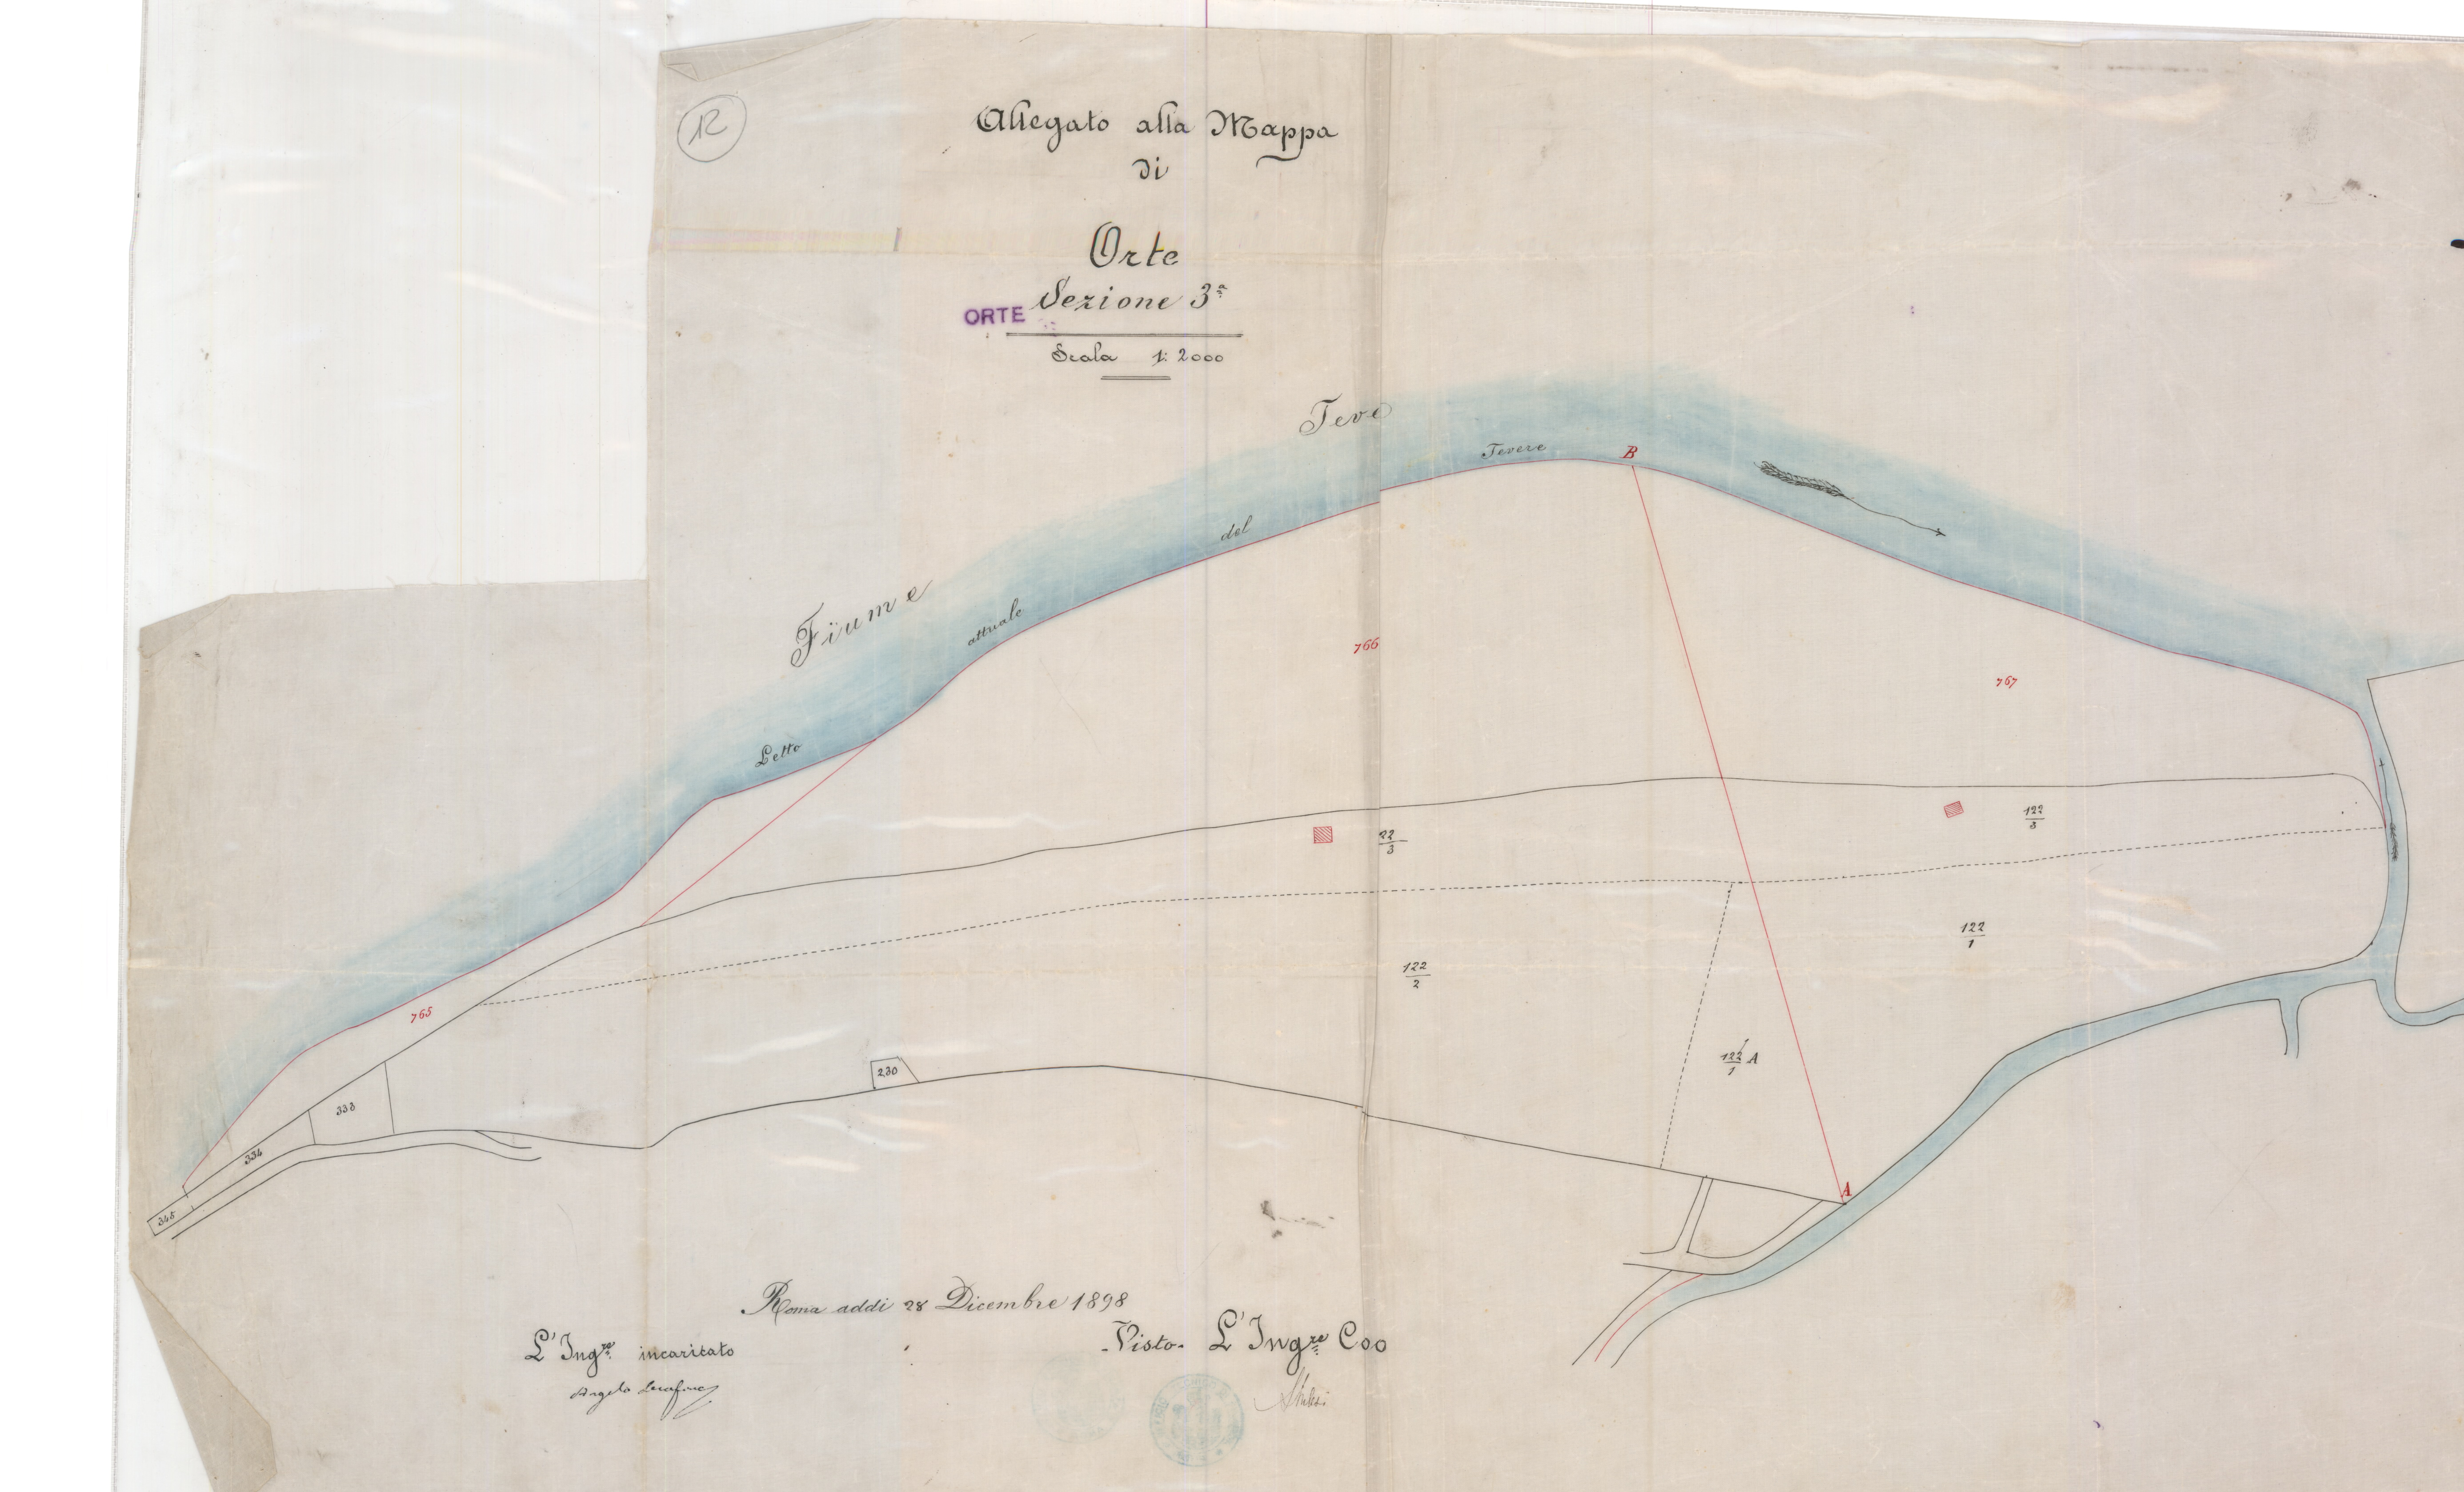 12
Allegato alla Mappa
di
Orte
Sezione 3ª
ORTE
Scala 1: 2000
Fiume Teve
Letto attuale del Tevere
B
766
767
122/3
22/3
122/1
122/2
765
122/1 A
230
333
334
345
A
Roma addi 28 Dicembre 1898
L'Ingre incaricato
Visto. L'Ingre Coo
Angelo